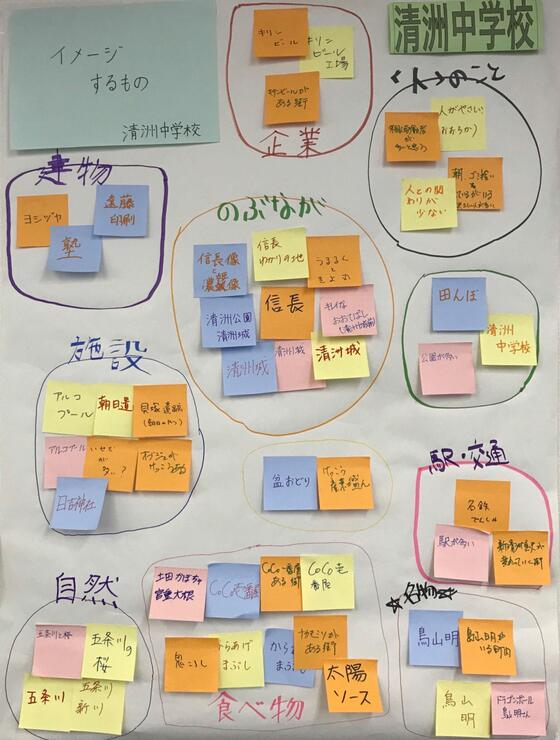 イメージ
するもの
清洲中学校
キリン
ビール
キリン
ビール
工場
キリンビールが
ある街
企業
清洲中学校
<人>のこと
人がやさしい
(おおらか)
人との関
わりが
少ない
建物
ヨシヅヤ
遠藤
印刷
塾
のぶなが
信長像と
濃姫像
信長
ゆかりの地
うるるん
と
きよ丸
信長
清洲公園
清洲城
キレイな
おおてばし
清洲城
清洲城
清洲城
田んぼ
清洲
中学校
公園が多い
施設
アルコ
プール
朝日遺
貝塚遺跡
アルコプール
日吉神社
盆おどり
けっこう
産業が盛ん
駅・交通
名鉄
でんしゃ
駅が多い
自然
五条川と桜
五条川の
桜
五条川
五条川
新川
土田かぼちゃ
宮重大根
CoCo壱番屋
CoCo壱番屋
ある街
CoCo壱
番屋
鬼ころし
からあげ
まぶし
からあ
まぶし
ナカモ
ある街
太陽
ソース
食べ物
☆名物
鳥山明
鳥山明が
いる町
鳥山
明
ドラゴンボール
鳥山明さん